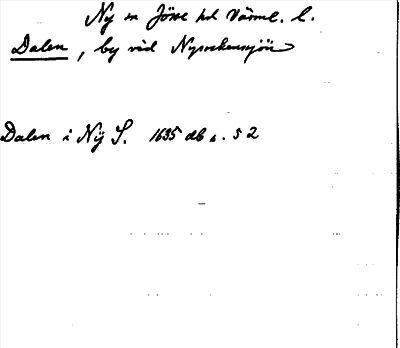 Ny sn Jösse hd Värml. l.
Dalen, by vid Nysockensjön
Dalen i Nÿ S. 1635 db s. 52